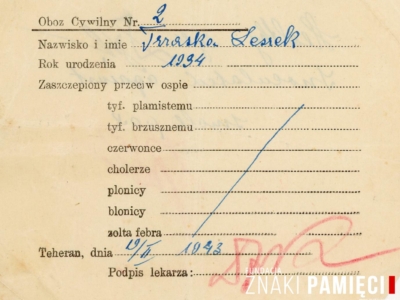 Oboz Cywilny Nr. 2
Nazwisko i imie Trraska Leszek
Rok urodzenia 1934
Zaszczepiony przeciw ospie
tyf. plamistemu
tyf. brzusznemu
czerwonce
cholerze
plonicy
blonicy
zolta febra
Teheran, dnia 19/II 1943
Podpis lekarza:
ZNAKI PAMIĘCI